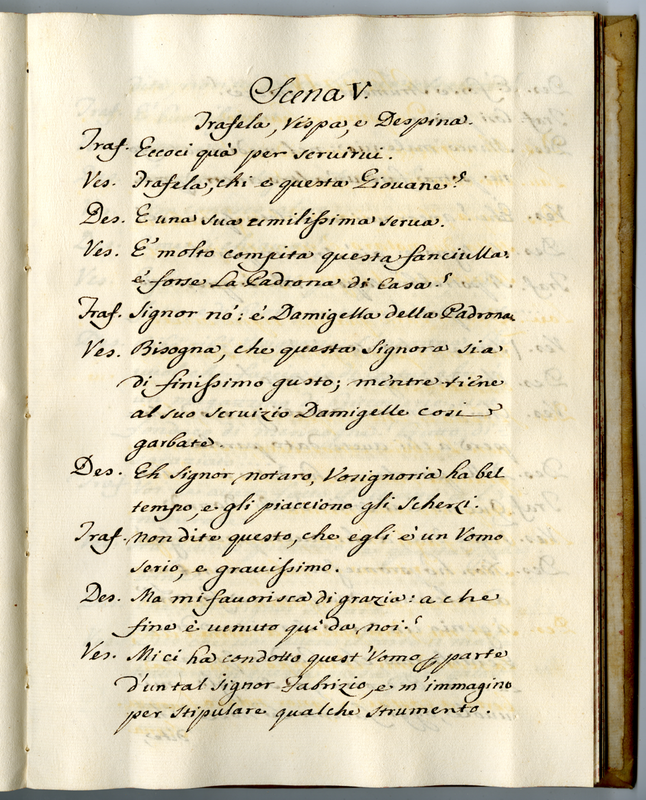 Scena V.
Trafela, Vespa, e Despina.
Traf. Eccoci quà per servirvi.
Ves. Trafela, chi e questa Giovane?
Des. E una sua umilissima serva.
Ves. E' molto compita questa fanciulla.
é forse La Padrona di Casa?
Traf. Signor nò: è Damigella della Padrona.
Ves. Bisogna, che questa Signora sia
di finissimo gusto; mentre tiene
al suo servizio Damigelle così
garbate.
Des. Eh Signor notaro, Vosignoria ha bel
tempo, e gli piacciono gli Scherzi.
Traf. Non dite questo, che egli è un Vomo
serio, e gravissimo.
Des. Ma mi favorisca di grazia: a che
fine è venuto quì da noi?
Ves. Mi ci ha condotto quest'Vomo parte
d'un tal Signor Fabrizio, e m'immagino
per stipulare qualche strumento.